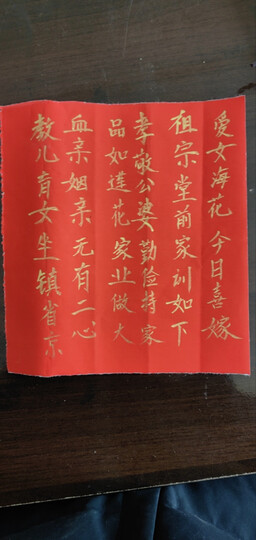 爱女海花今日喜嫁
祖宗堂前家训如下
孝敬公婆勤俭持家
品如莲花家业做大
血亲姻亲无有二心
教儿育女坐镇省京